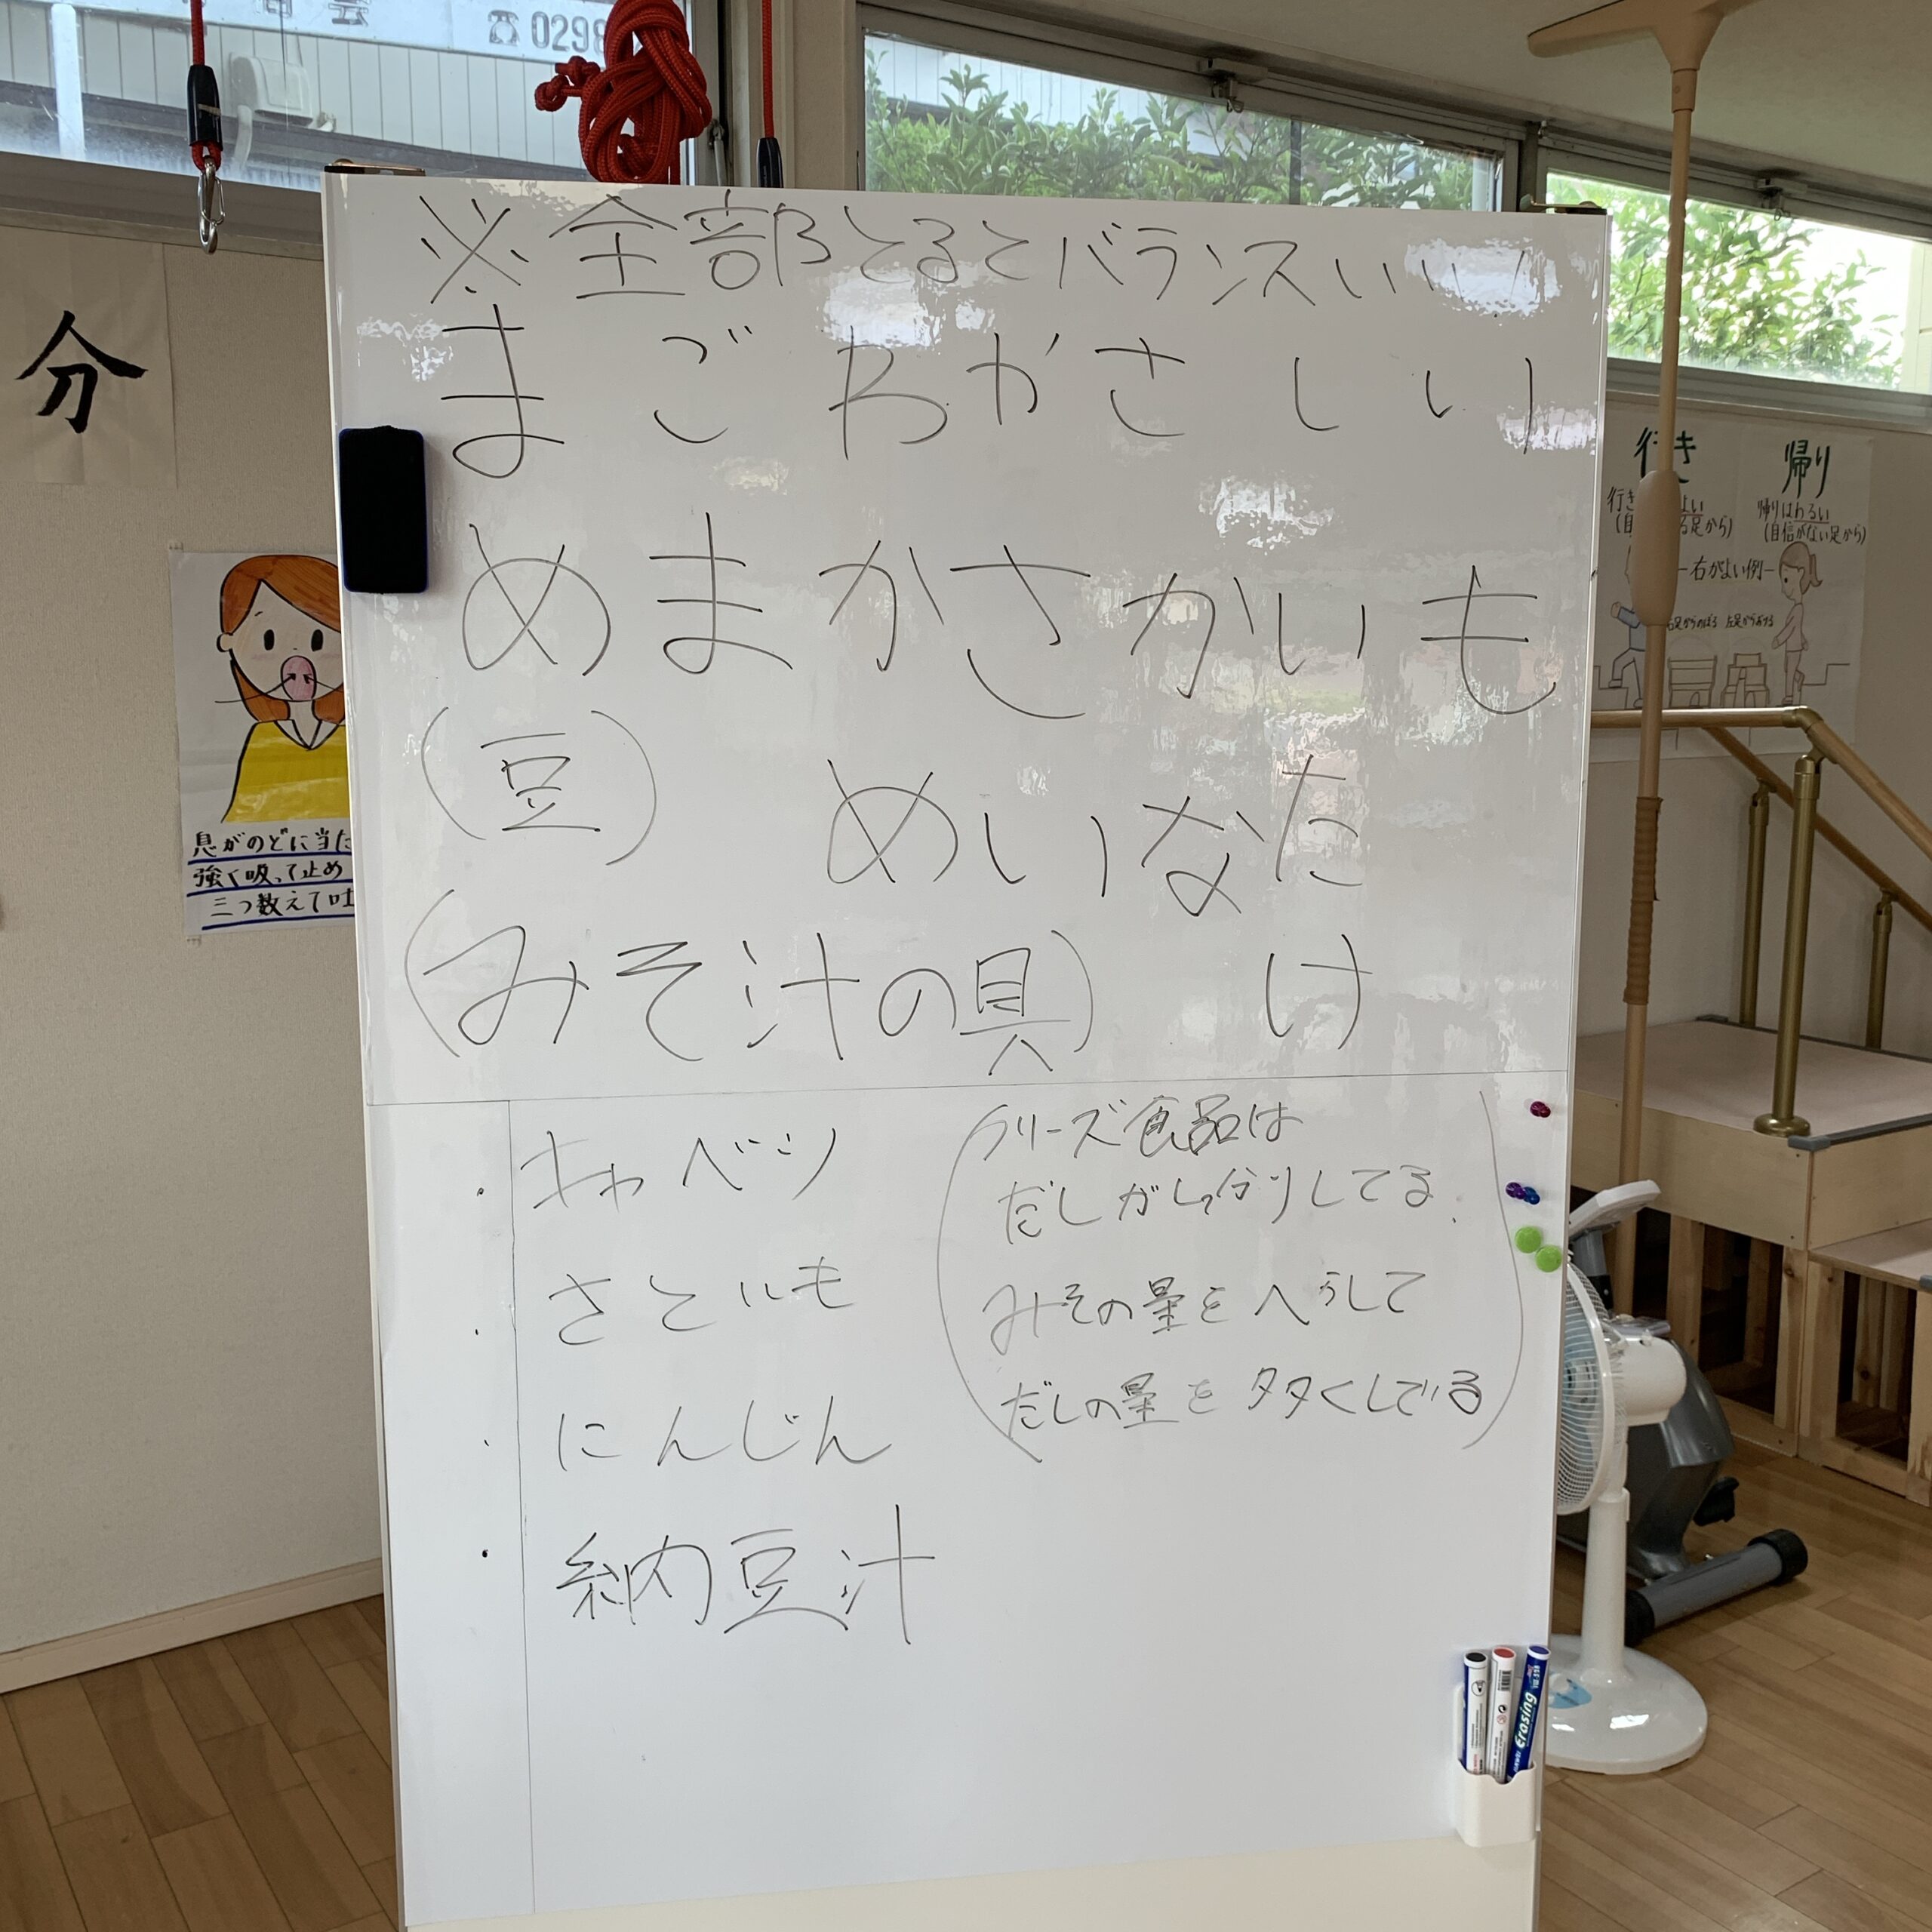 ☎0298
※全部とるとバランスいい
まごわかさしい
めまかさかいも
(豆) めいなた
(みそ汁の具) け
・キャベツ
・さといも
・にんじん
・納豆汁
(フリーズ食品は
だしがしっかりしてる.
みその量をへらして
だしの量を多くしている)
分
息がのどに当た
強く吸って止め
三つ数えて吐
行き
帰り
帰りはわるい
(自信がない足から)
右がよい例
Erasing